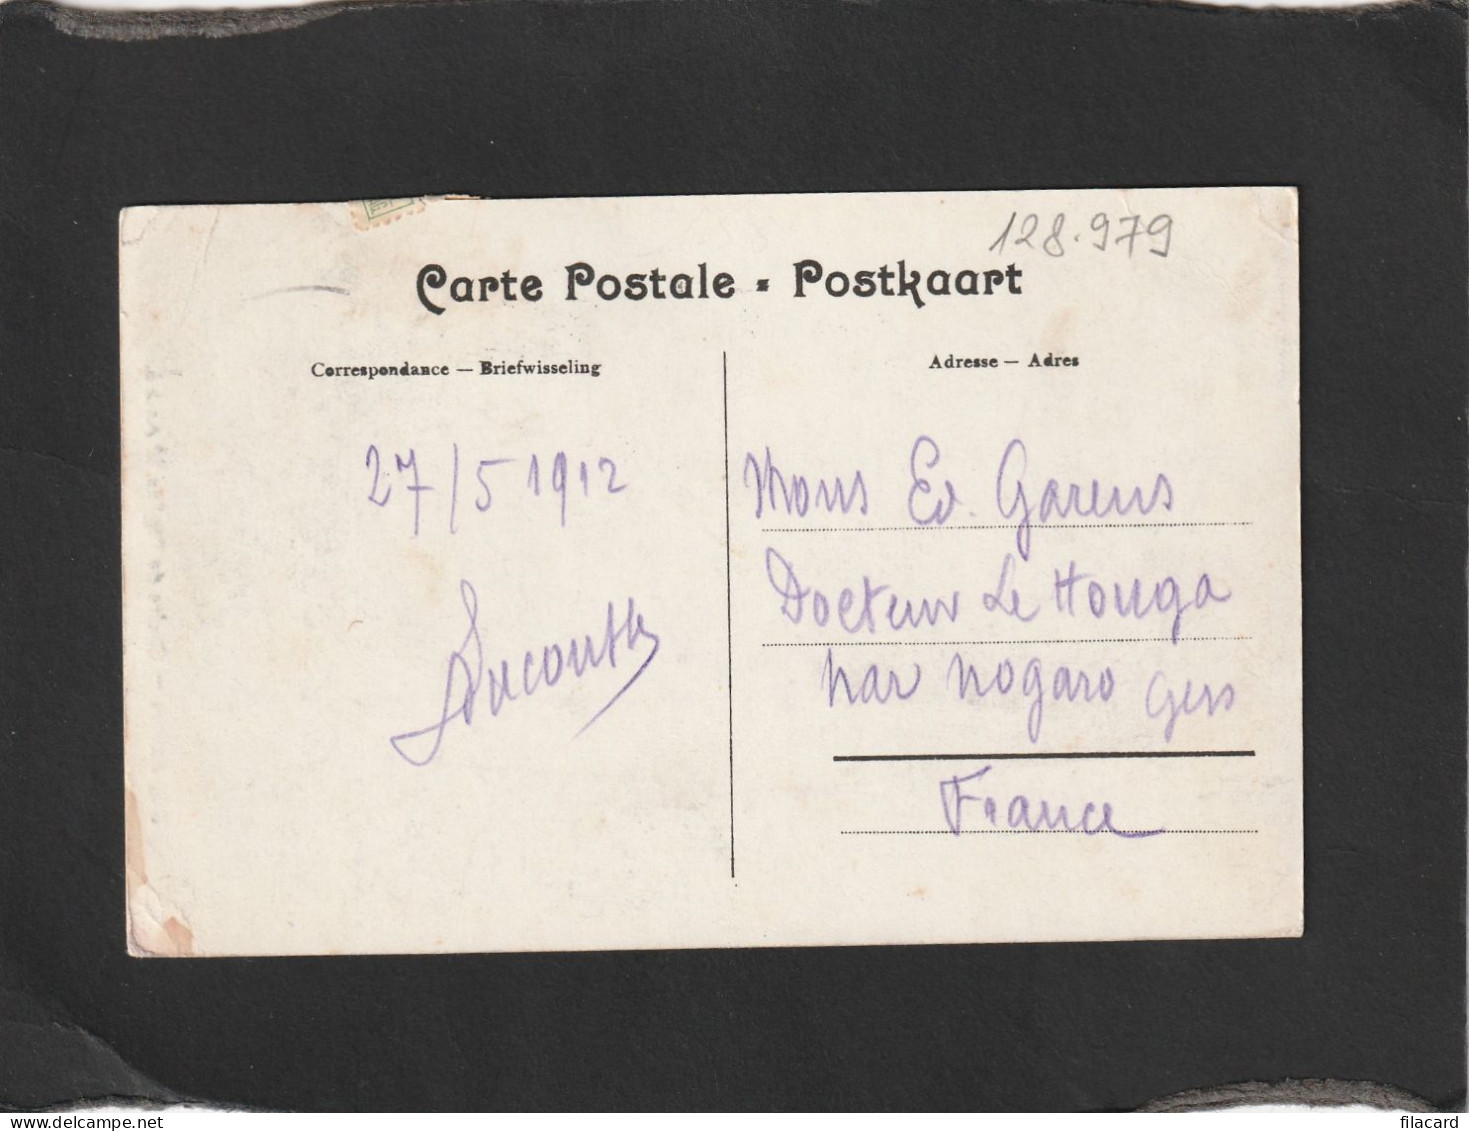 128.979
Carte Postale - Postkaart
Correspondance — Briefwisseling
Adresse — Adres
27/5 1912
Mons Ed. Garens
Docteur Le Houga
par Nogaro Gers
France
filacard